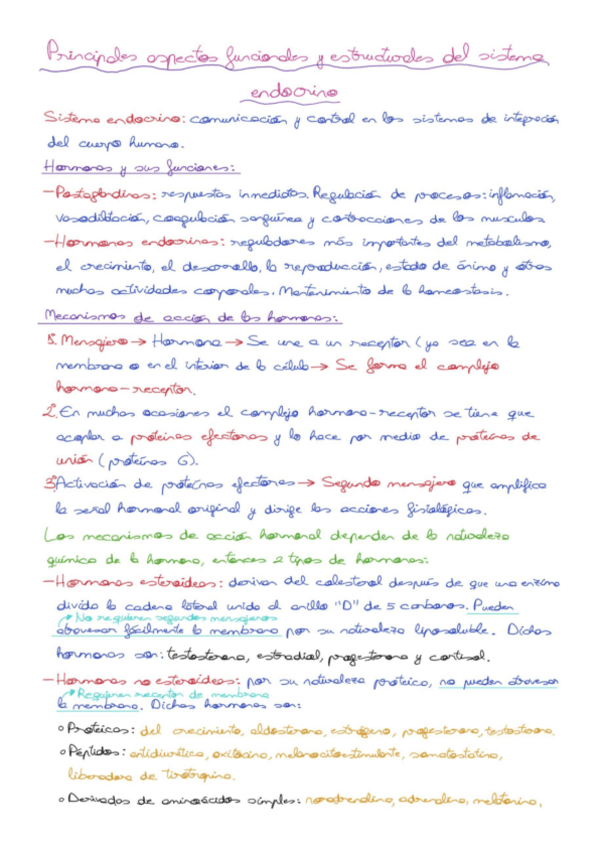 Principales aspectos funcionales y estructurales del sistema
endocrino
Sistema endocrino: comunicación y control en los sistemas de integración
del cuerpo humano.
Hormonas y sus funciones:
-Postaglandinas: respuestas inmediatas. Regulación de procesos: inflamación,
vasodilatación, coagulación sanguínea y contracciones de los musculos
-Hormonas endocrinas: reguladores más importantes del metabolismo,
el crecimiento, el desarrollo, la reproducción, estado de ánimo y otras
muchas actividades corporales. Mantenimiento de la homeostasis.
Mecanismos de acción de las hormonas:
1º. Mensajero → Hormona → Se une a un receptor (ya sea en la
membrana o en el interior de la célula → Se forma el complejo
hormona-receptor.
2º. En muchas ocasiones el complejo hormona-receptor se tiene que
acoplar a proteínas efectoras y lo hace por medio de proteínas de
unión (proteínas G).
3º. Activación de proteínas efectoras → Segundo mensajero que amplifica
la señal hormonal original y dirige las acciones fisiológicas.
Los mecanismos de acción hormonal dependen de la naturaleza
química de la hormona, entonces 2 tipos de hormonas:
-Hormonas esteroideas: derivan del colesterol después de que una enzima
divida la cadena lateral unida al anillo "D" de 5 carbonos. Pueden
No requieren segundos mensajeros
atravesar fácilmente la membrana por su naturaleza liposoluble. Dichas
hormonas son: testosterona, estradial, progesterona y cortisol.
-Hormonas no esteroideas: por su naturaleza proteica, no pueden atravesar
Requieren receptor de membrana
la membrana. Dichas hormonas son:
o Proteicas: del crecimiento, aldosterona, estrógeno, progesterona, testosterona.
o Péptidos: antidiurética, oxitocina, melanocitoestimulante, somatostatina,
liberadora de tirotropina.
o Derivados de aminoácidos simples: noradrenalina, adrenalina, melatonina,